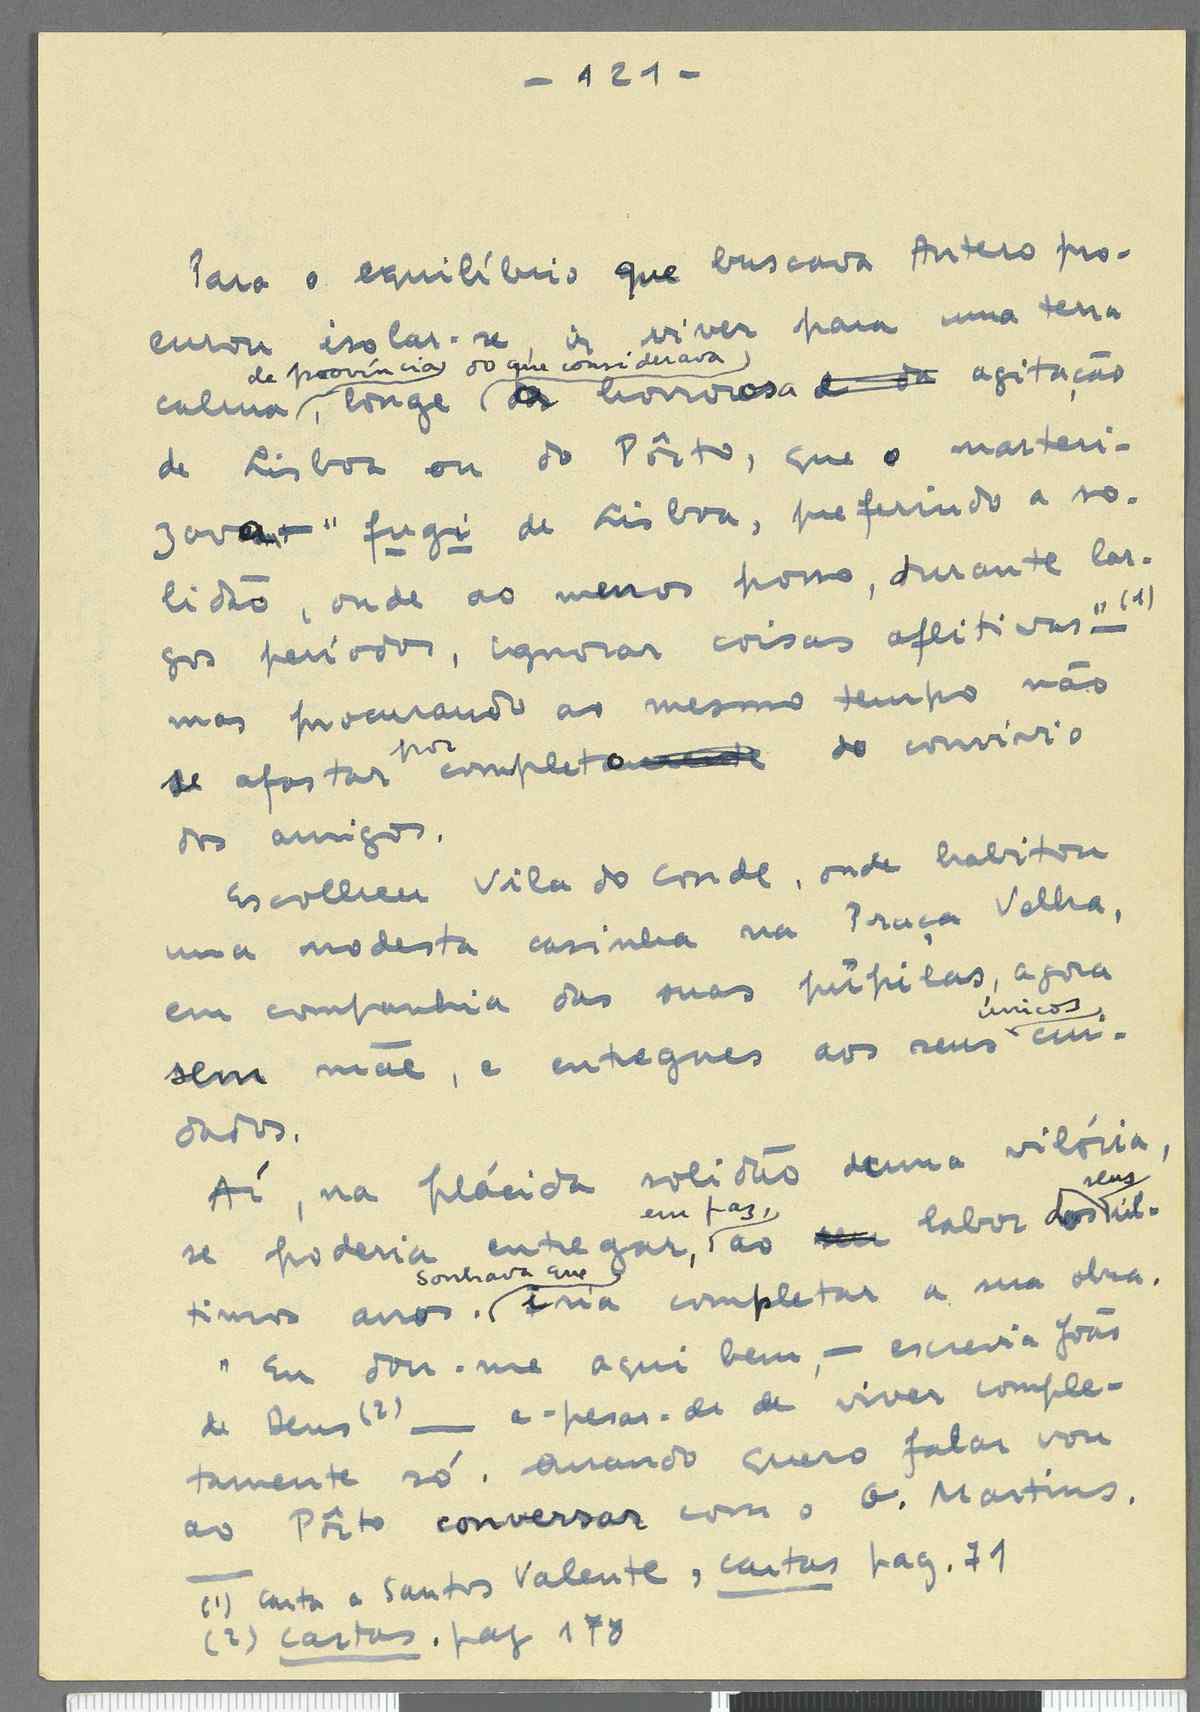 - 121 -
Para o equilíbrio que buscava Antero pro-
curou isolar-se, ir viver para uma terra
de província do que considerava
calma, longe da horrorosa e da agitação
de Lisboa ou do Pôrto, que o marteri-
zava "fugi de Lisboa, preferindo a so-
lidão, onde ao menos posso, durante lar-
gos períodos, ignorar coisas aflitivas" (1)
mas procurando ao mesmo tempo não
por
se afastar completamente do convívio
dos amigos.
Escolheu Vila do Conde, onde habitou
uma modesta casinha na Praça Velha,
em companhia das suas púpilas, agora
únicos
sem mãe, e entregues aos seus cui-
dados.
Aí, na plácida solidão duma vilória,
em paz, seus
se poderia entregar, ao seu labor dos úl-
sonhava que
timos anos. iria completar a sua obra.
"Eu dou-me aqui bem, — escrevia João
de Deus (2) — a-pesar-de de viver comple-
tamente só. Quando quero falar vou
ao Pôrto conversar com o O. Martins.
(1) Carta a Santos Valente, cartas pag. 71
(2) cartas. pag 178